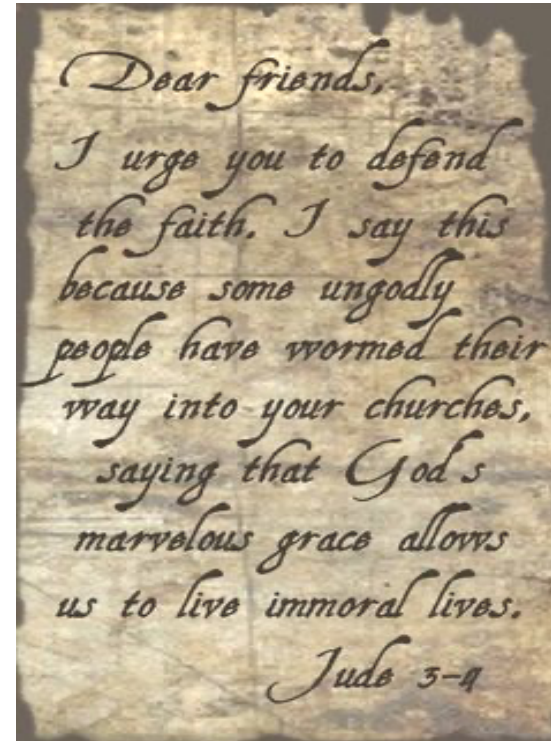 Dear friends,
I urge you to defend
the faith. I say this
because some ungodly
people have wormed their
way into your churches,
saying that God s
marvelous grace allows
us to live immoral lives.
Jude 3-4